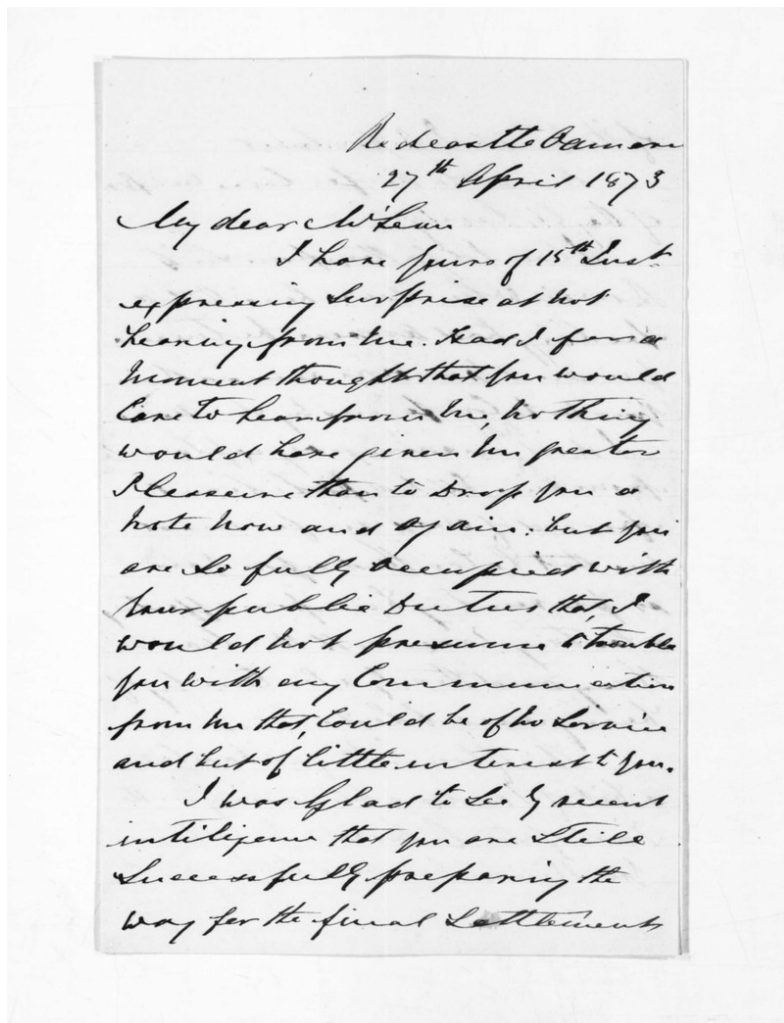 Redcastle Oamaru
27th April 1873
My dear McLean
I have yours of 15th Inst
expressing Surprise at not
hearing from me. Had I for a
moment thought that you would
Care to hear from me, nothing
would have given me greater
Pleasure than to Drop you a
note now and again: but you
are so fully occupied with
your public Duties that, I
would not presume to trouble
you with any Communication
from me that, Could be of no Service
and but of little interest to you.
I was Glad to See by recent
intiligence that you are Still
Successfully preparing the
way for the final Settlement